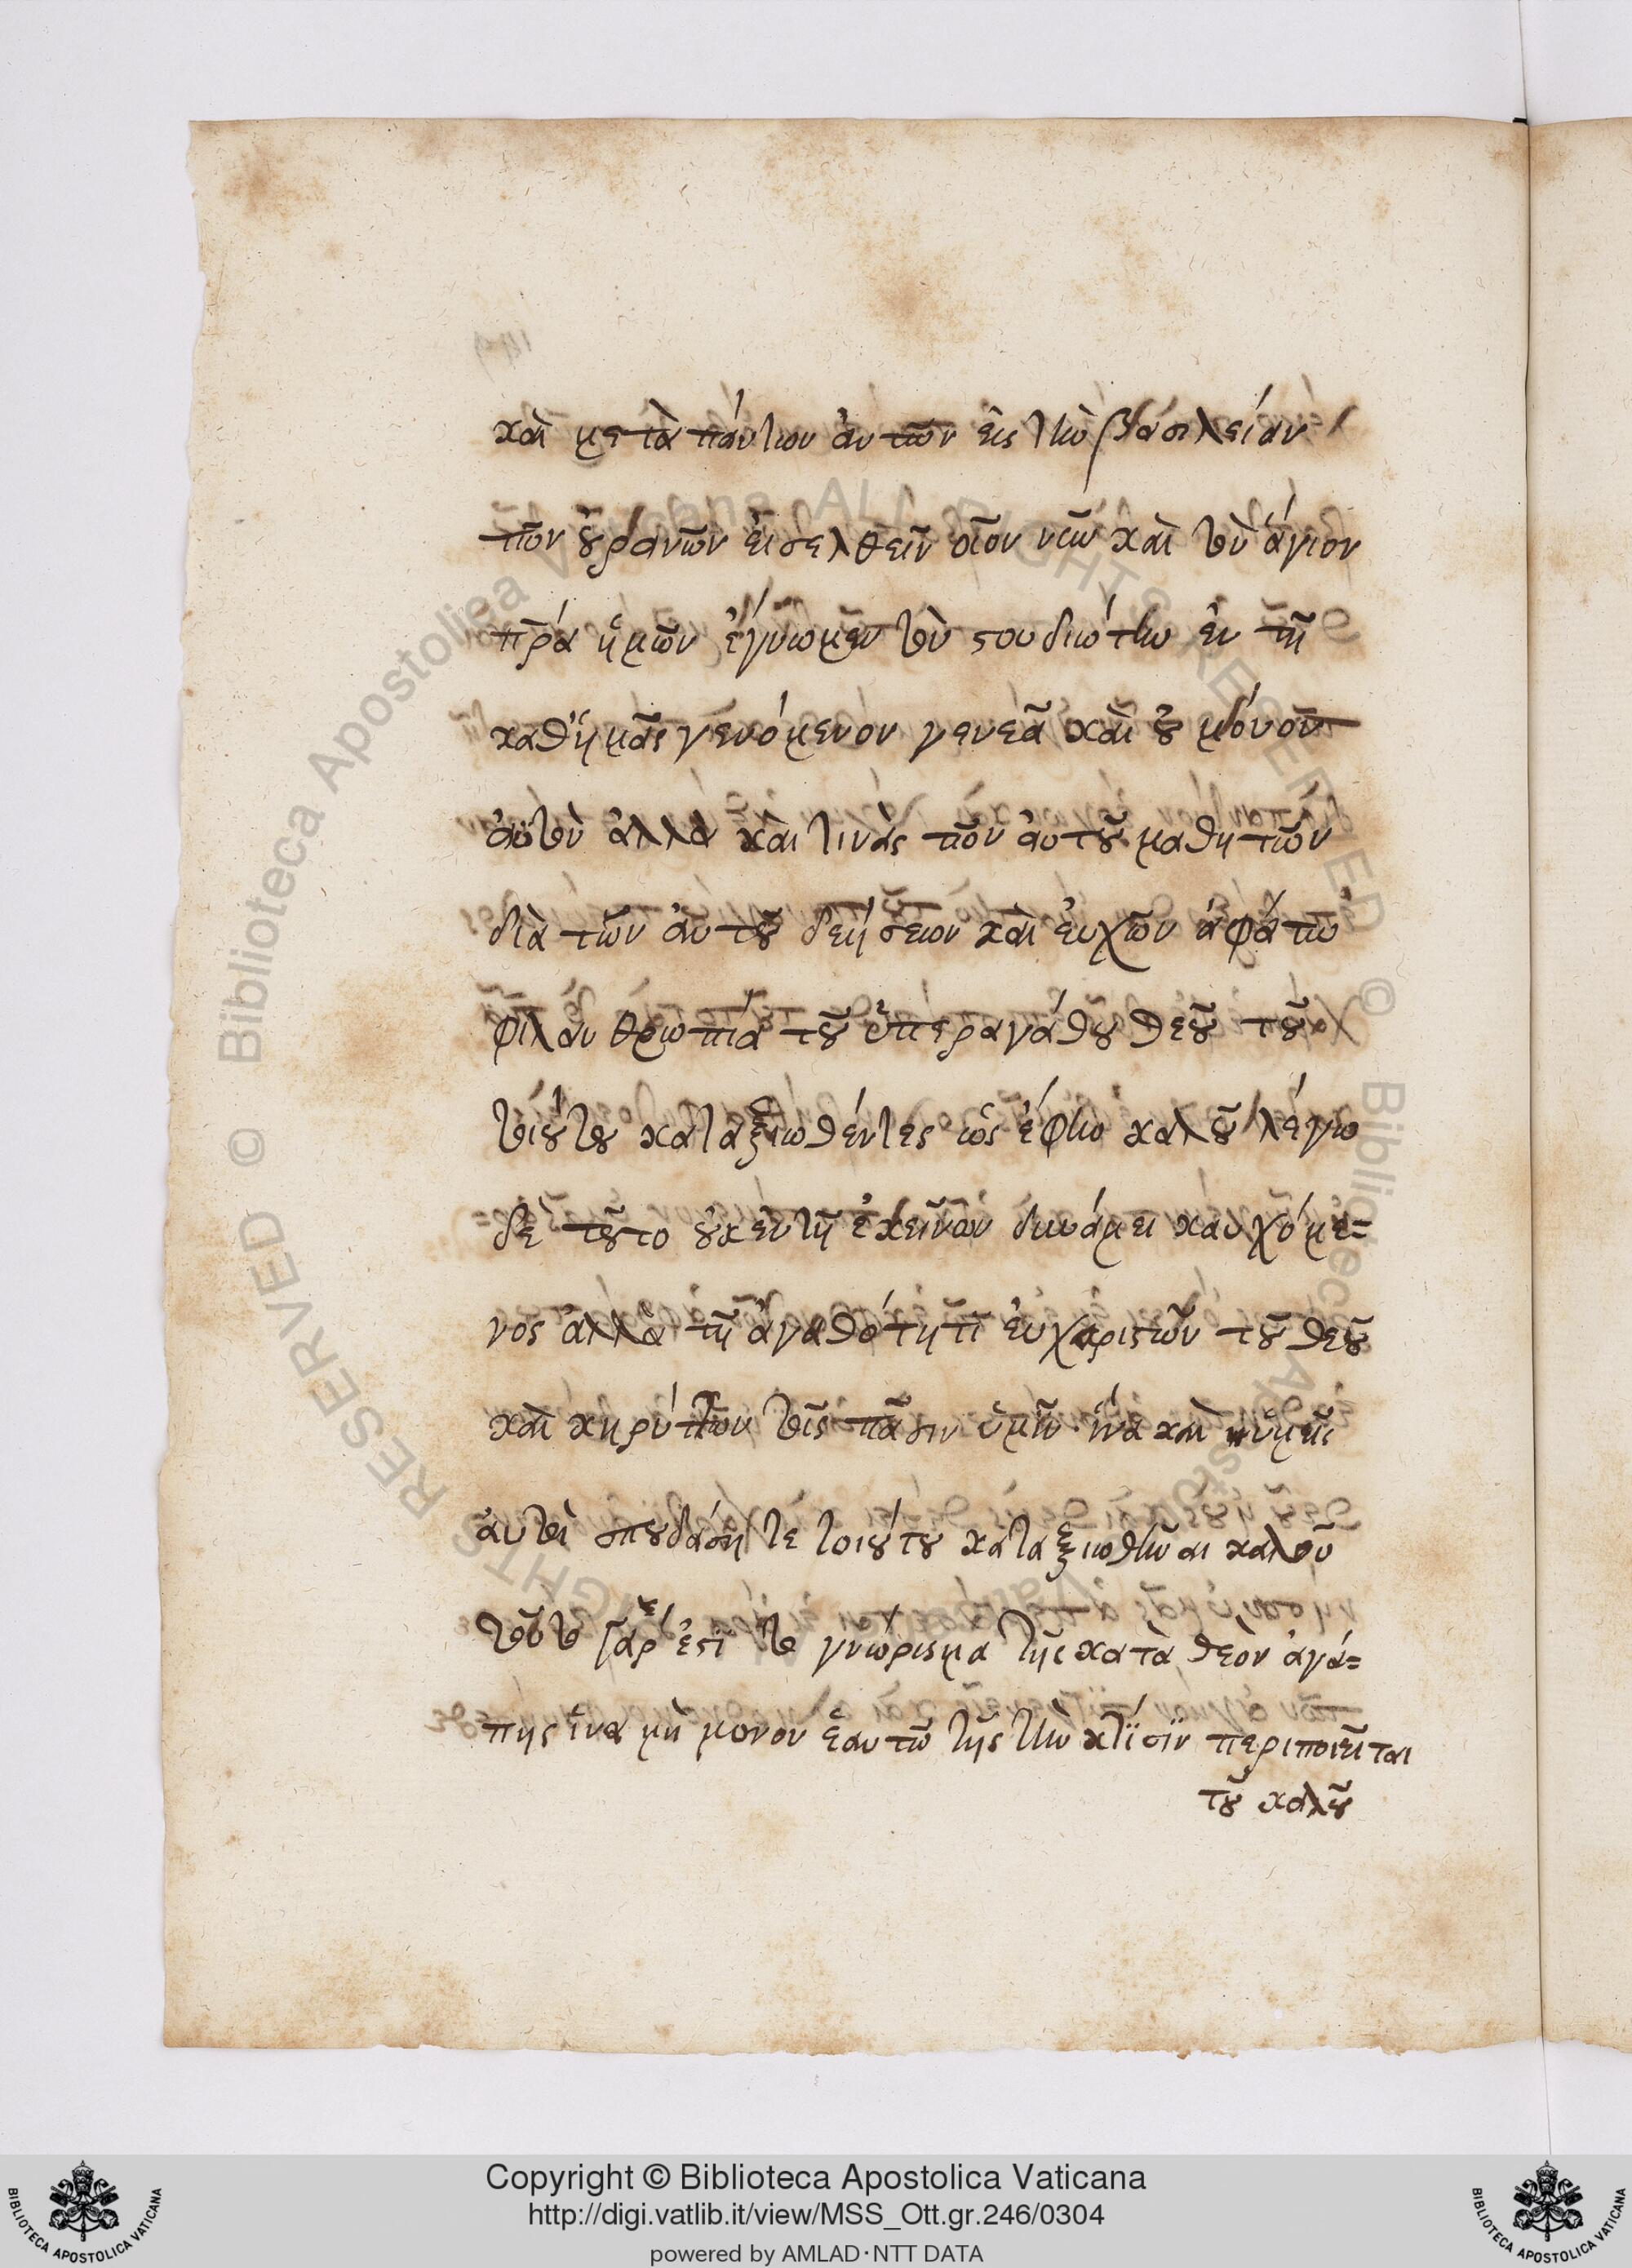 καὶ μετὰ πάντων ἀυτῶν εἰς τὴν βασιλείαν
τῶν ὀυρανῶν ἐισελθεῖν οἷον νῦν καὶ τὸν ἅγιον
πρ̅α ἡμῶν ἔγνωμεν τὸν στουδιώτην ἐν τῆ
καθἡμᾶς γενόμενον γενεᾶ καὶ ὀυ μόνον
ἀυτὸν ἀλλὰ καὶ τινὰς τῶν ἀυτοῦ μαθητῶν
διὰ τῶν ἀυτοῦ δεήσεων καὶ ἐυχῶν ἀφάτω
φιλανθρωπία τοῦ ὑπεραγάθου θεοῦ τοῦ
τοιούτου καταξιωθέντες ὡς ἔφην καλοῦ λέγω
δὲ τοῦτο ὀυκ ἐν τῆ ἐκείνων δυνάμει καυχόμε=
νος ἀλλὰ τῆ ἀγαθότητι ἐυχαριστῶν τοῦ θεοῦ
καὶ κηρύττων τοῖς πᾶσιν ὑμῖν ἵνα καὶ ὑμεῖς
ἀυτοὶ σπουδάσητε τοιούτου καταξιωθῆναι καλοῦ
τοῦτο γὰρ ἐστὶ τὸ γνώρισμα τῆς κατὰ θεὸν ἀγά=
πης ἵνα μὴ μόνον ἑαυτῶ τῆς τὴν κτίσιν περιποιεῖται
τοῦ καλοῦ
Copyright © Biblioteca Apostolica Vaticana
http://digi.vatlib.it/view/MSS_Ott.gr.246/0304
powered by AMLAD·NTT DATA
BIBLIOTECA APOSTOLICA VATICANA
BIBLIOTECA APOSTOLICA VATICANA